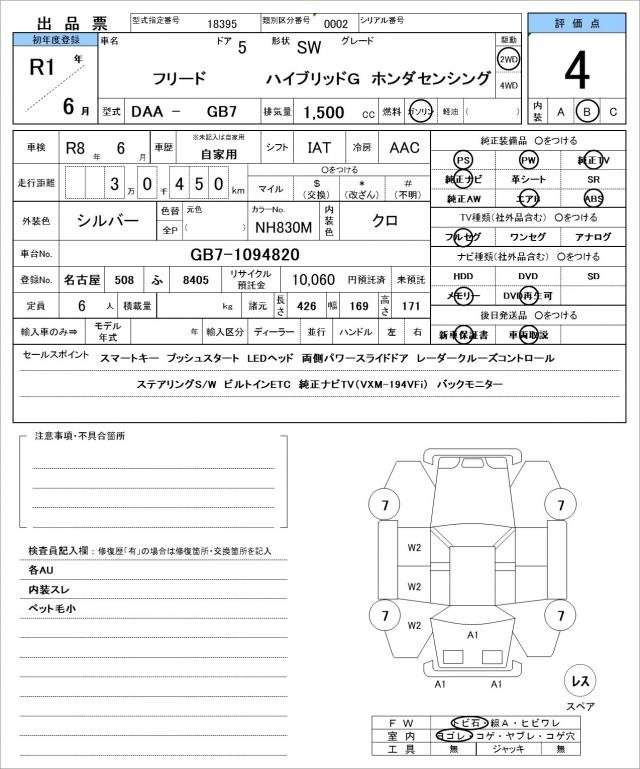 出品票 型式指定番号 18395 類別区分番号 0002 シリアル番号 評価点
初年度登録 車名 ドア 5 形状 SW グレード 駆動
R1 年 フリード ハイブリッドG ホンダセンシング 2WD 4
4WD
6 月 型式 DAA − GB7 排気量 1,500 cc 燃料 ガソリン 軽油 ( ) 内装 A B C
車検 R8 年 6 月 車歴 ※未記入は自家用 自家用 シフト IAT 冷房 AAC 純正装備品 〇をつける
PS PW 純正TV
走行距離 3 万 0 千 4 5 0 km 〇をつける 純正ナビ 革シート SR
マイル $ (交換) * (改ざん) # (不明) 純正AW エアB ABS
外装色 シルバー 色替 元色 カラーNo. 内装色 クロ TV種類(社外品含む) 〇をつける
全P ( ) NH830M フルセグ ワンセグ アナログ
車台No. GB7-1094820 ナビ種類(社外品含む) 〇をつける
登録No. 名古屋 508 ふ 8405 リサイクル預託金 10,060 円預託済 未預託 HDD DVD SD
定員 6 人 積載量 kg 諸元 長さ 426 幅 169 高さ 171 メモリー DVD再生可
後日発送品 〇をつける
輸入車のみ⇒ モデル年式 年 輸入区分 ディーラー 並行 ハンドル 左 右 新車保証書 車両取説
セールスポイント スマートキー プッシュスタート LEDヘッド 両側パワースライドドア レーダークルーズコントロール
ステアリングS/W ビルトインETC 純正ナビTV(VXM-194VFi) バックモニター
注意事項・不具合箇所
検査員記入欄:修復歴「有」の場合は修復箇所・交換箇所を記入
各AU
内装スレ
ペット毛小
7 7
W2
W2
7 W2 7
A1
A1 A1
レス
スペア
FW トビ石・線A・ヒビワレ
室内 ヨゴレ・コゲ・ヤブレ・コゲ穴
工具 無 ジャッキ 無